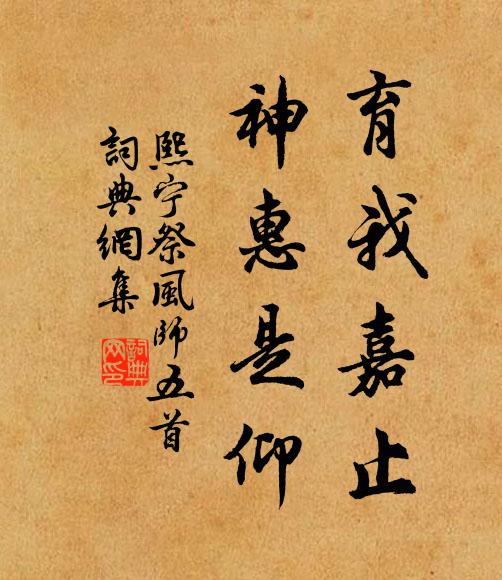 育我嘉止
神惠是仰
熙宁祭風師五首
詞典網集
詞典網印